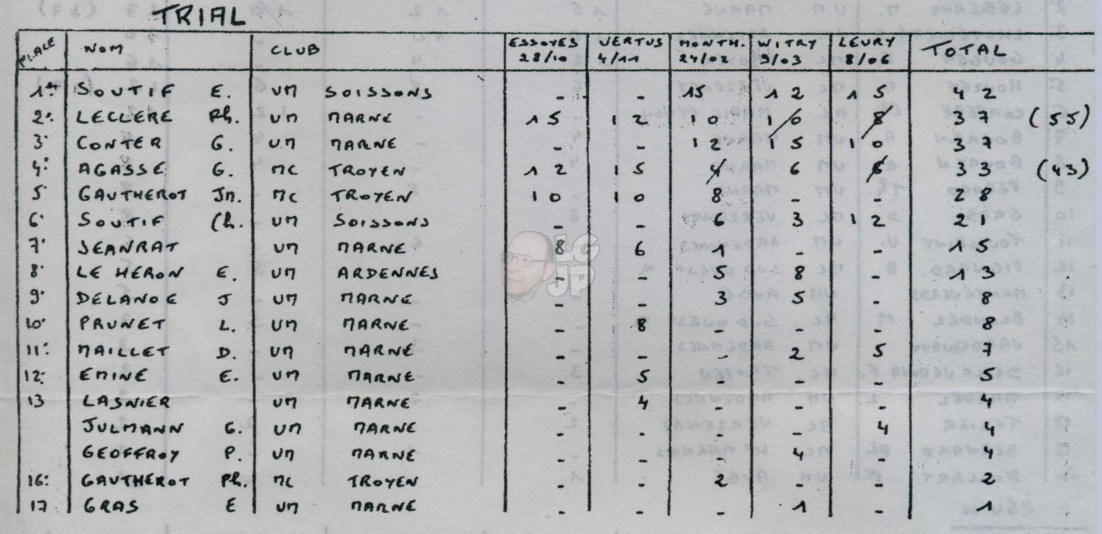 TRIAL
PLACE NOM CLUB ESSOYES 28/10 VERTUS 4/11 MONTH. 24/02 WITRY 9/03 LEURY 8/06 TOTAL
1er SOUTIF E. UM SOISSONS - - 15 12 15 42
2e LECLERE Ph. UM MARNE 15 12 10 10 8 37 (55)
3e CONTER G. UM MARNE - - 12 15 10 37
4e AGASSE G. MC TROYEN 12 15 4 6 6 33 (43)
5e GAUTHEROT Jn. MC TROYEN 10 10 8 - - 28
6e SOUTIF Ch. UM SOISSONS - - 6 3 12 21
7e JEANRAT UM MARNE 8 6 1 - - 15
8e LE HERON E. UM ARDENNES - - 5 8 - 13
9e DELANOE J UM MARNE - - 3 5 - 8
10e PRUNET L. UM MARNE - 8 - - - 8
11e MAILLET D. UM MARNE - - - 2 5 7
12e EMINE E. UM MARNE - 5 - - - 5
13 LASNIER UM MARNE - 4 - - - 4
JULMANN G. UM MARNE - - - - 4 4
GEOFFROY P. UM MARNE - - - 4 - 4
16e GAUTHEROT Ph. MC TROYEN - - 2 - - 2
17 GRAS E UM MARNE - - - 1 - 1
LG
JP